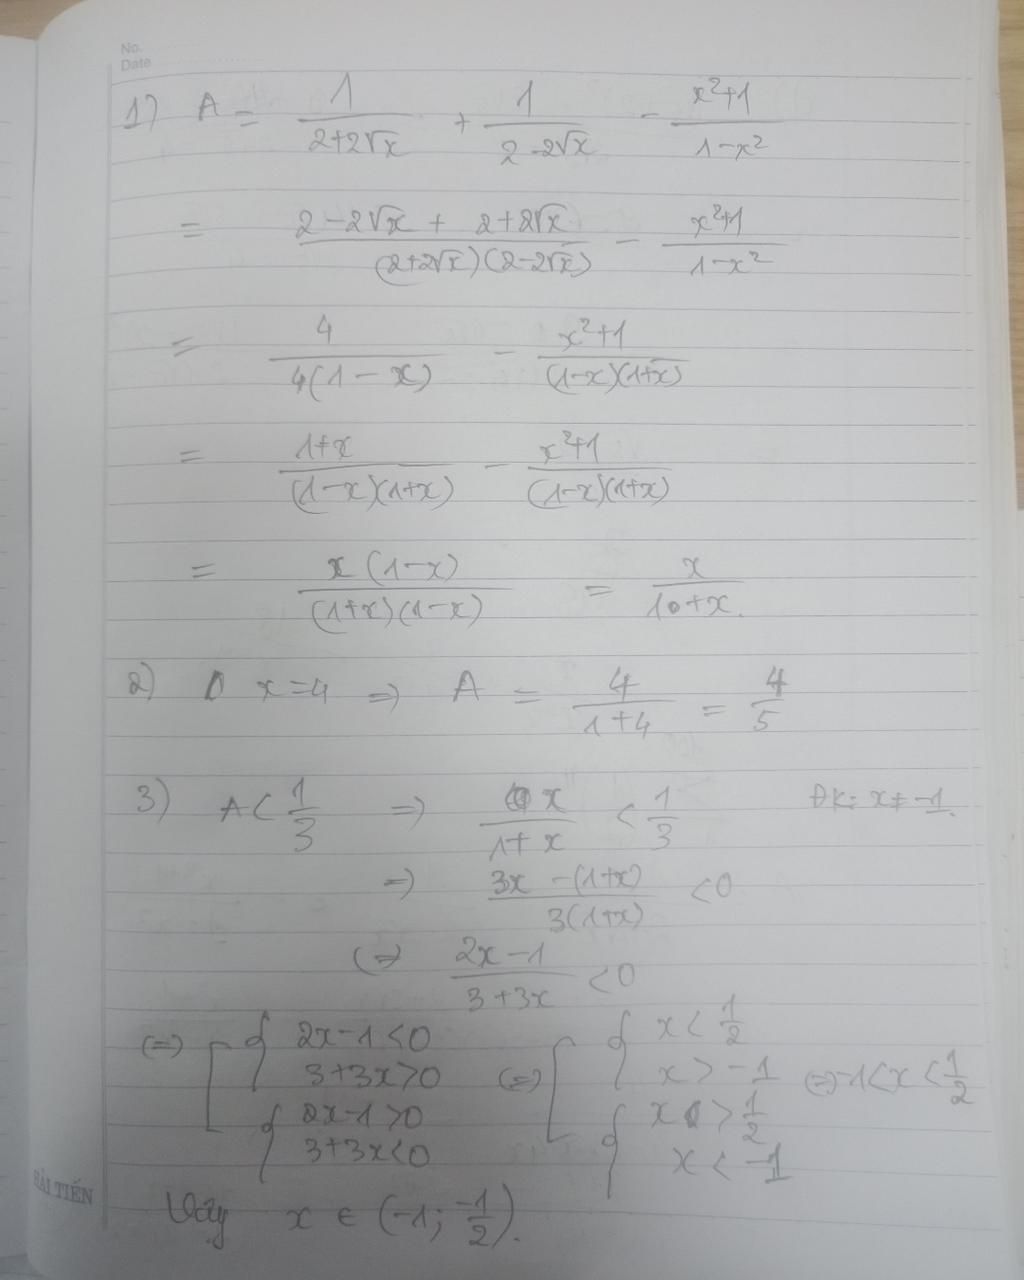 No.
Date
1) A = 1/(2+2√x) + 1/(2-2√x) - (x²+1)/(1-x²)
= (2-2√x + 2+2√x)/((2+2√x)(2-2√x)) - (x²+1)/(1-x²)
= 4/(4(1-x)) - (x²+1)/((1-x)(1+x))
= (1+x)/((1-x)(1+x)) - (x²+1)/((1-x)(1+x))
= x(1-x)/((1+x)(1-x)) = x/(1+x).
2) x=4 => A = 4/(1+4) = 4/5
3) A < 1/3 => x/(1+x) < 1/3 ĐK: x ≠ -1.
=> (3x-(1+x))/(3(1+x)) < 0
(=> (2x-1)/(3+3x) < 0
(=) [ { 2x-1<0 (=) [ { x < 1/2
3+3x>0 x > -1 (=) -1<x<1/2
{ 2x-1>0 { x > 1/2
3+3x<0 x < -1
Vậy x ∈ (-1; -1/2).
HẢI TIẾN